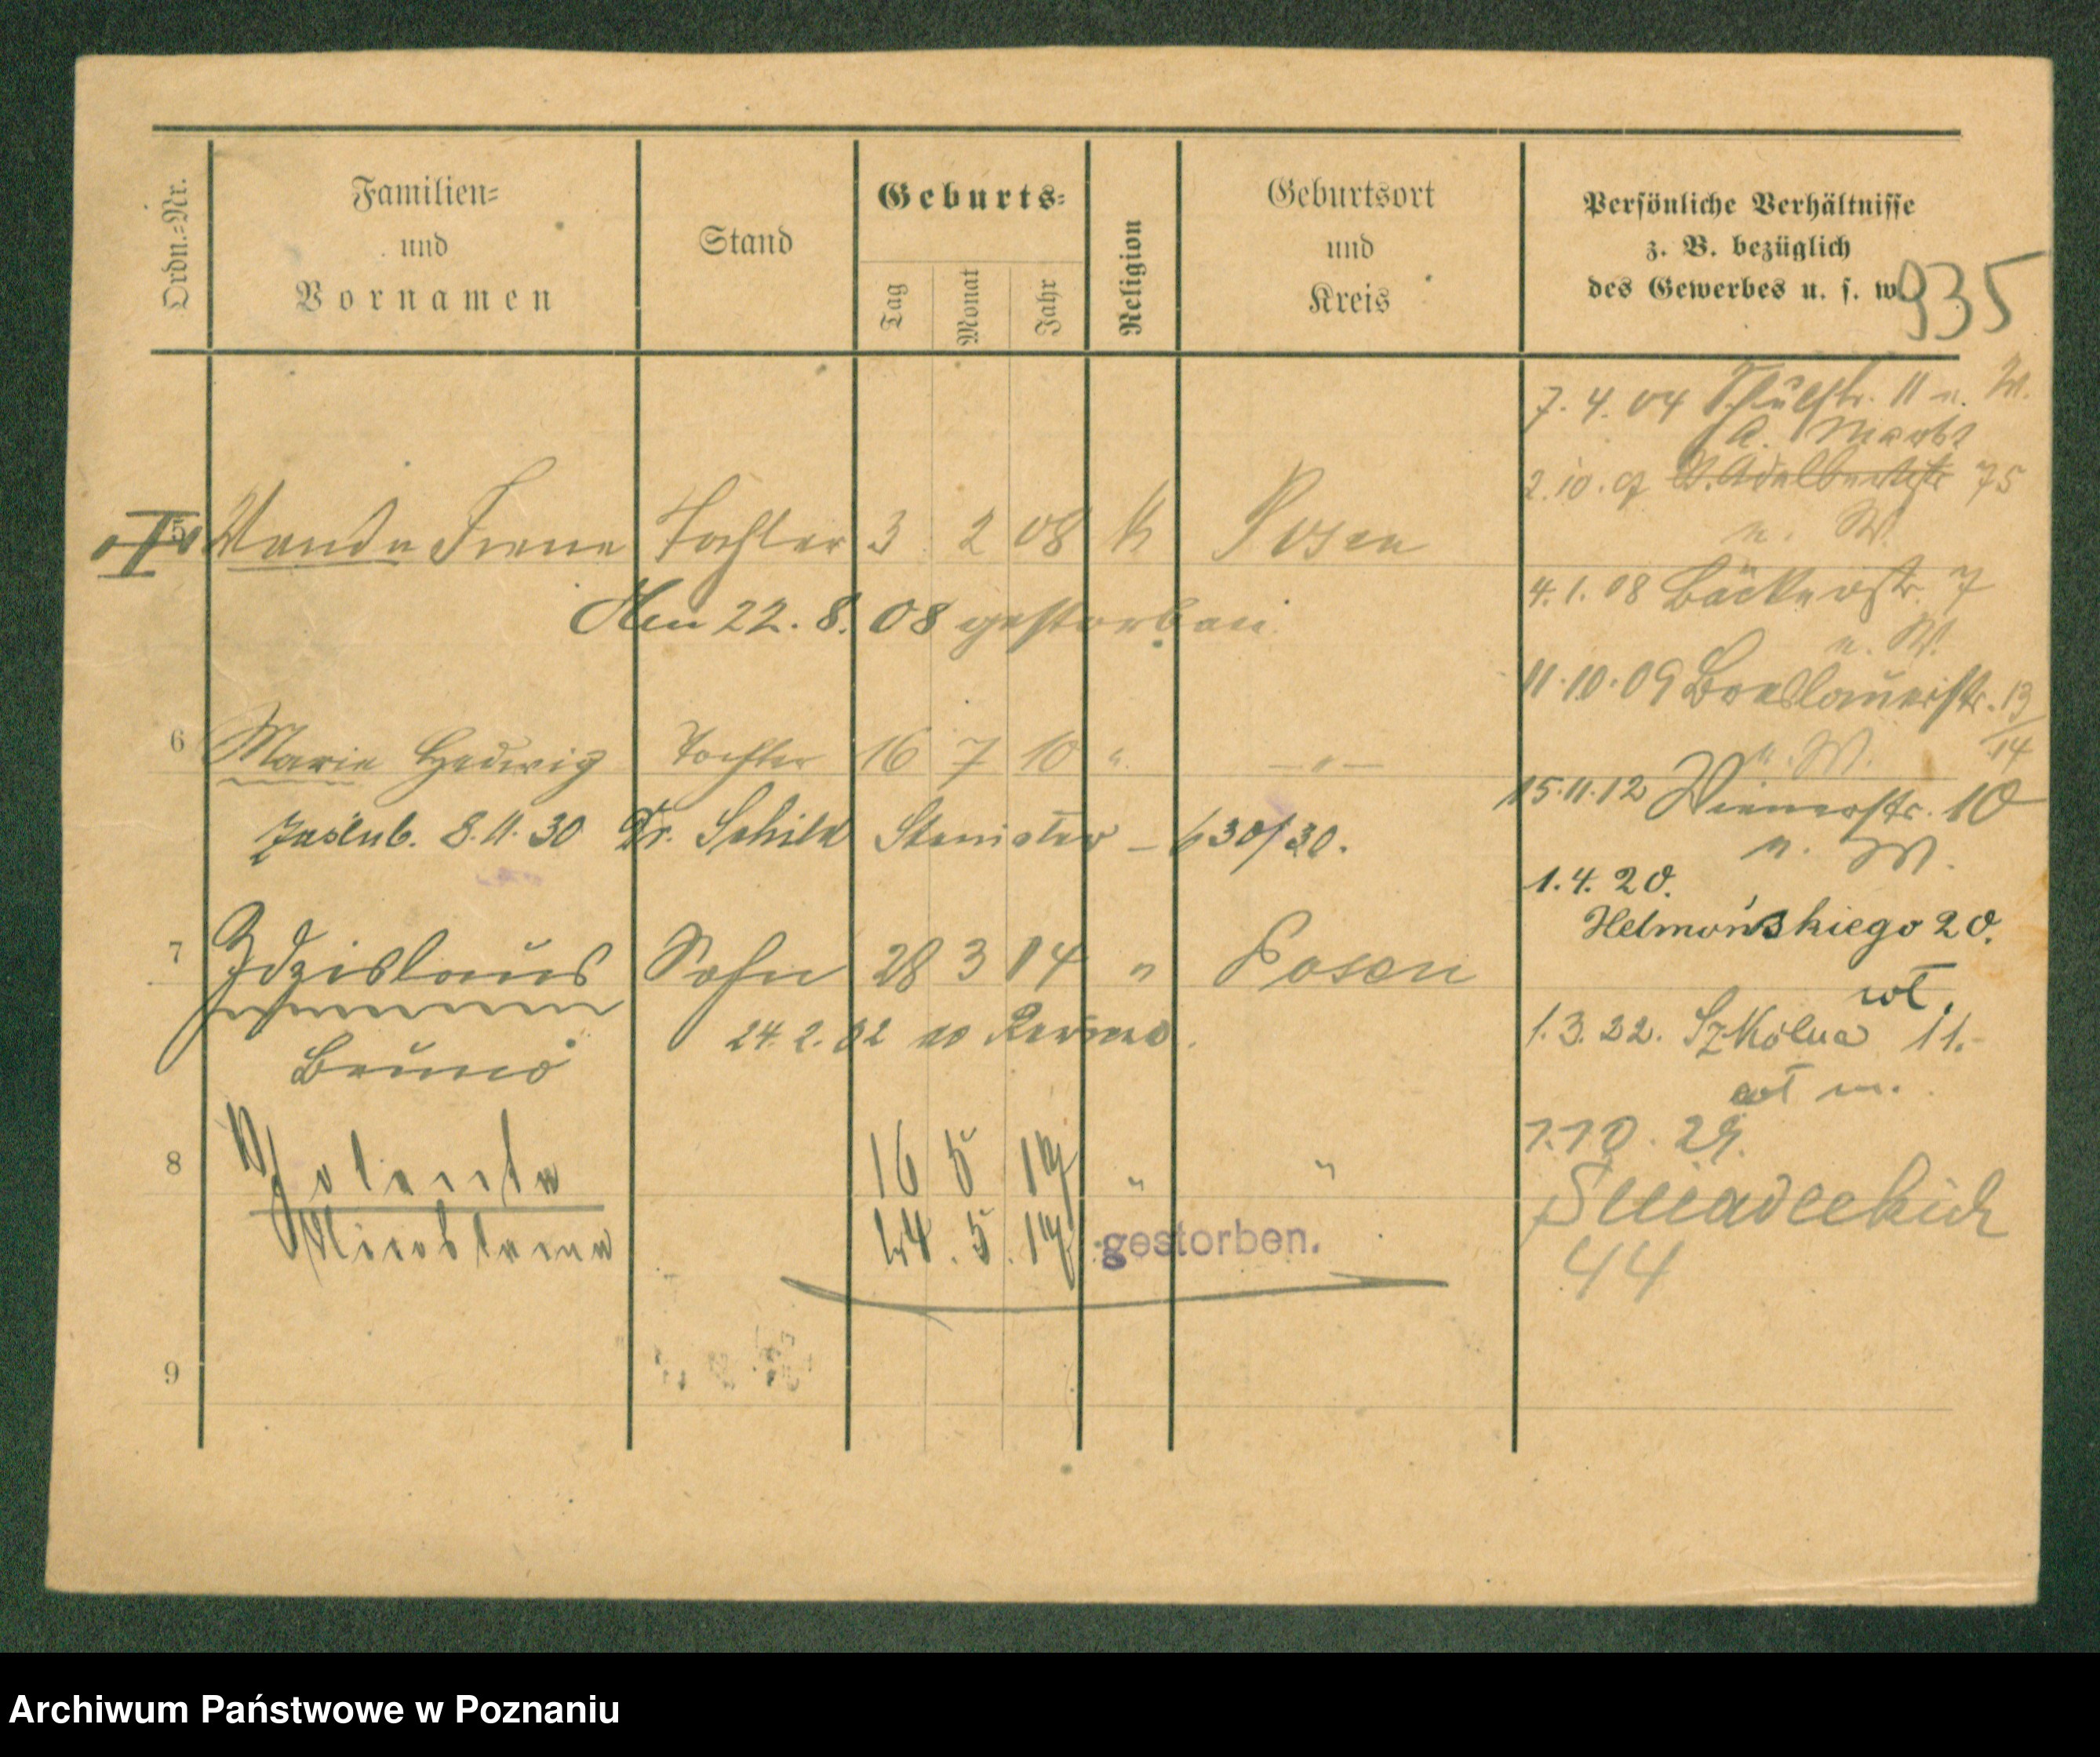 Ordn.-Nr.
Familien-
und
Vornamen
Stand
Geburts-
Tag
Monat
Jahr
Religion
Geburtsort
und
Kreis
Persönliche Verhältnisse
z. B. bezüglich
des Gewerbes u. s. w.
935
7. 4. 04 11 u. W.
2.10.07 St. Adalbertstr 75
u. W.
5 Wanda Irene Tochter 3 2 08 K Posen
4.1.08 Bäckerstr. 7
u. W.
Den 22. 8. 08 gestorben
11.10.09 Breslauerstr. 13/14
u. W.
6 Marie Hedwig Tochter 16 7 10 " — " —
15.11.12 Wienerstr. 10
u. W.
Zaślub. 8.11.30 Dr. Schild Stanisław – 630/30.
1.4.20.
Helmońskiego 20.
wł.
7 Zdzislaus Sohn 28 3 14 " Posen
Bruno
24.2.32
1.3.22. Szkolna 11.-
wł m.
8 Jolanta 16 5 17 " "
Miroslawa 24. 5. 17 gestorben.
1.10.29.
Śniadeckich
44
9
Archiwum Państwowe w Poznaniu